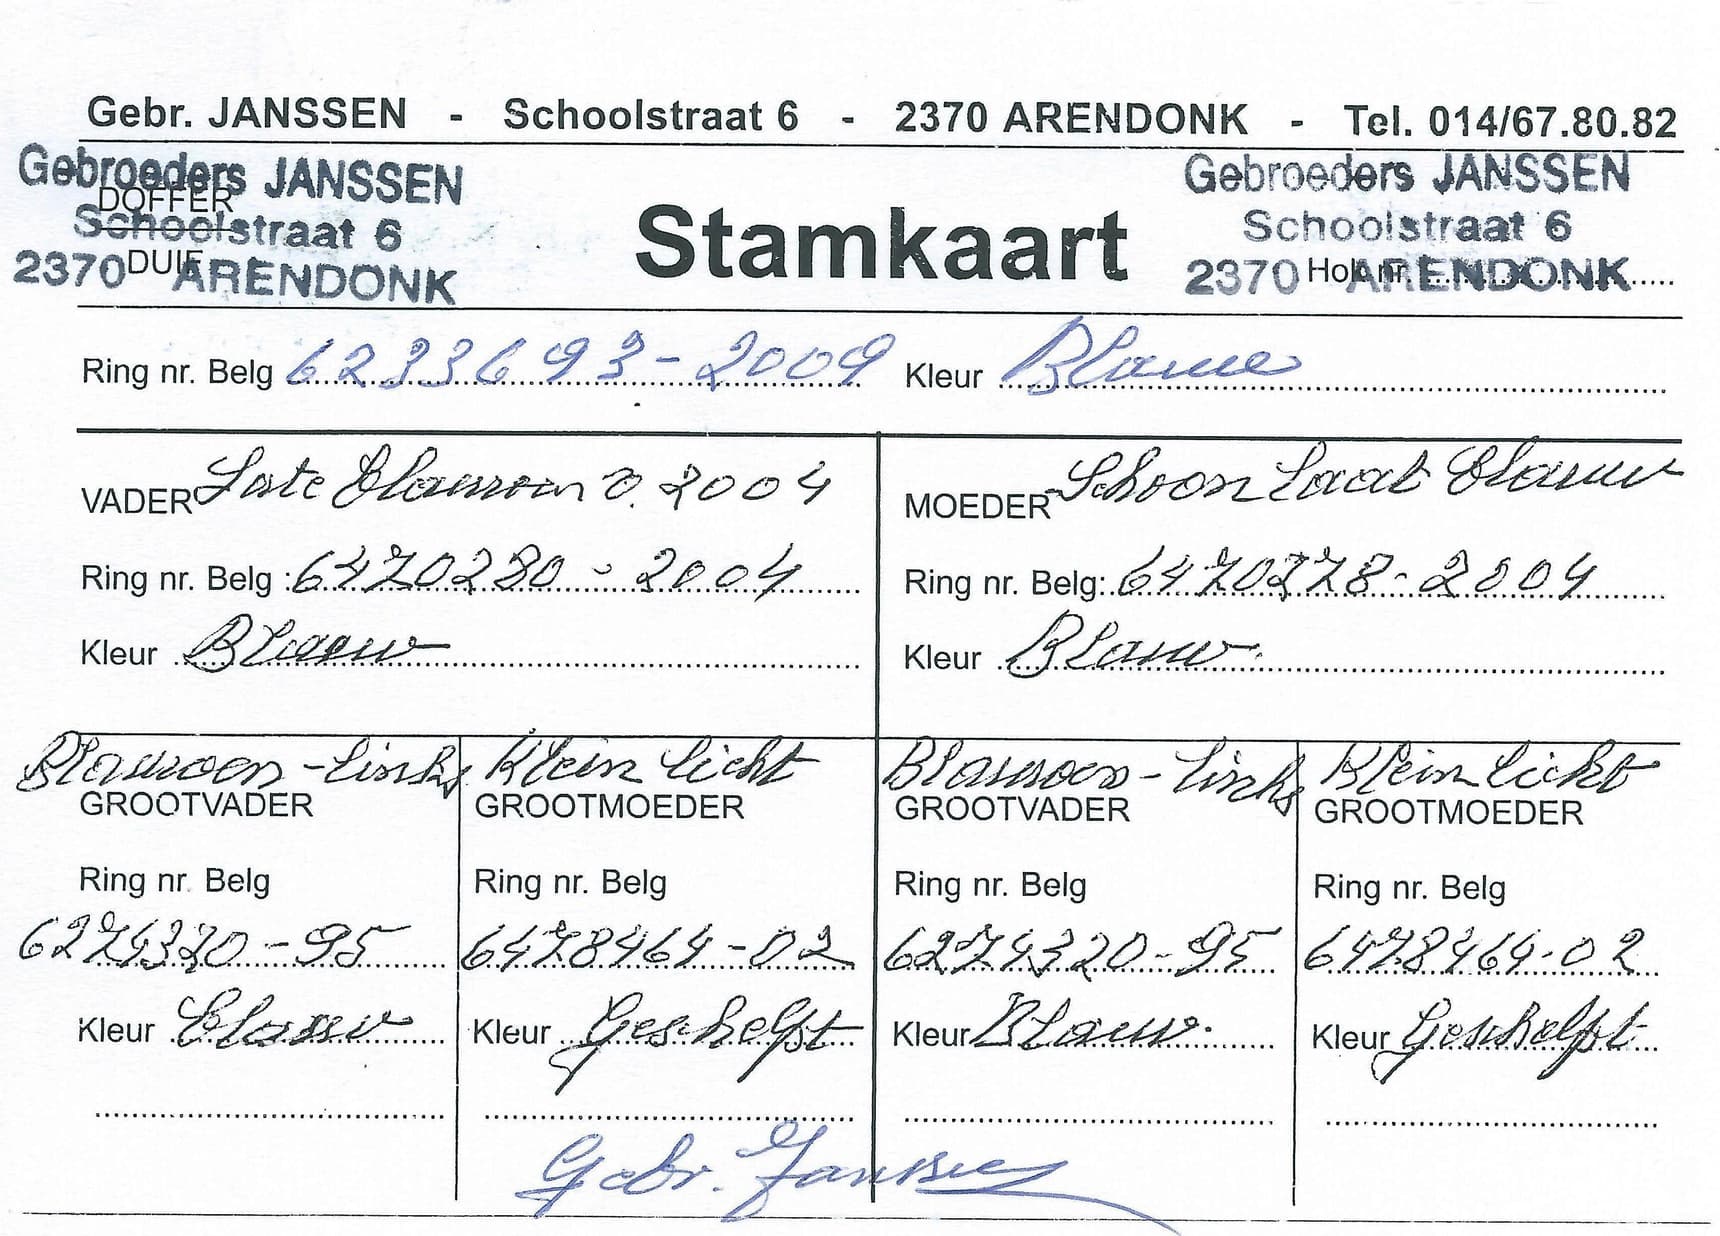 Gebr. JANSSEN - Schoolstraat 6 - 2370 ARENDONK - Tel. 014/67.80.82
Gebroeders JANSSEN
DOFFER
Schoolstraat 6
DUIF
2370 ARENDONK
Stamkaart
Gebroeders JANSSEN
Schoolstraat 6
Hok nr.
2370 ARENDONK
Ring nr. Belg 6233693-2009 Kleur Blauwe
VADER Late Blauwen 2004
MOEDER Schoon Laat Blauw
Ring nr. Belg : 6470280 - 2004
Ring nr. Belg: 6470278-2004
Kleur Blauw
Kleur Blauw
Blauwen - Links Klein Licht Blauwen - Links Klein Licht
GROOTVADER GROOTMOEDER GROOTVADER GROOTMOEDER
Ring nr. Belg Ring nr. Belg Ring nr. Belg Ring nr. Belg
6274320-95 6478464-02 6274320-95 6478464-02
Kleur Blauw Kleur Geschelpt Kleur Blauw. Kleur Geschelpt
Gebr. Janssen